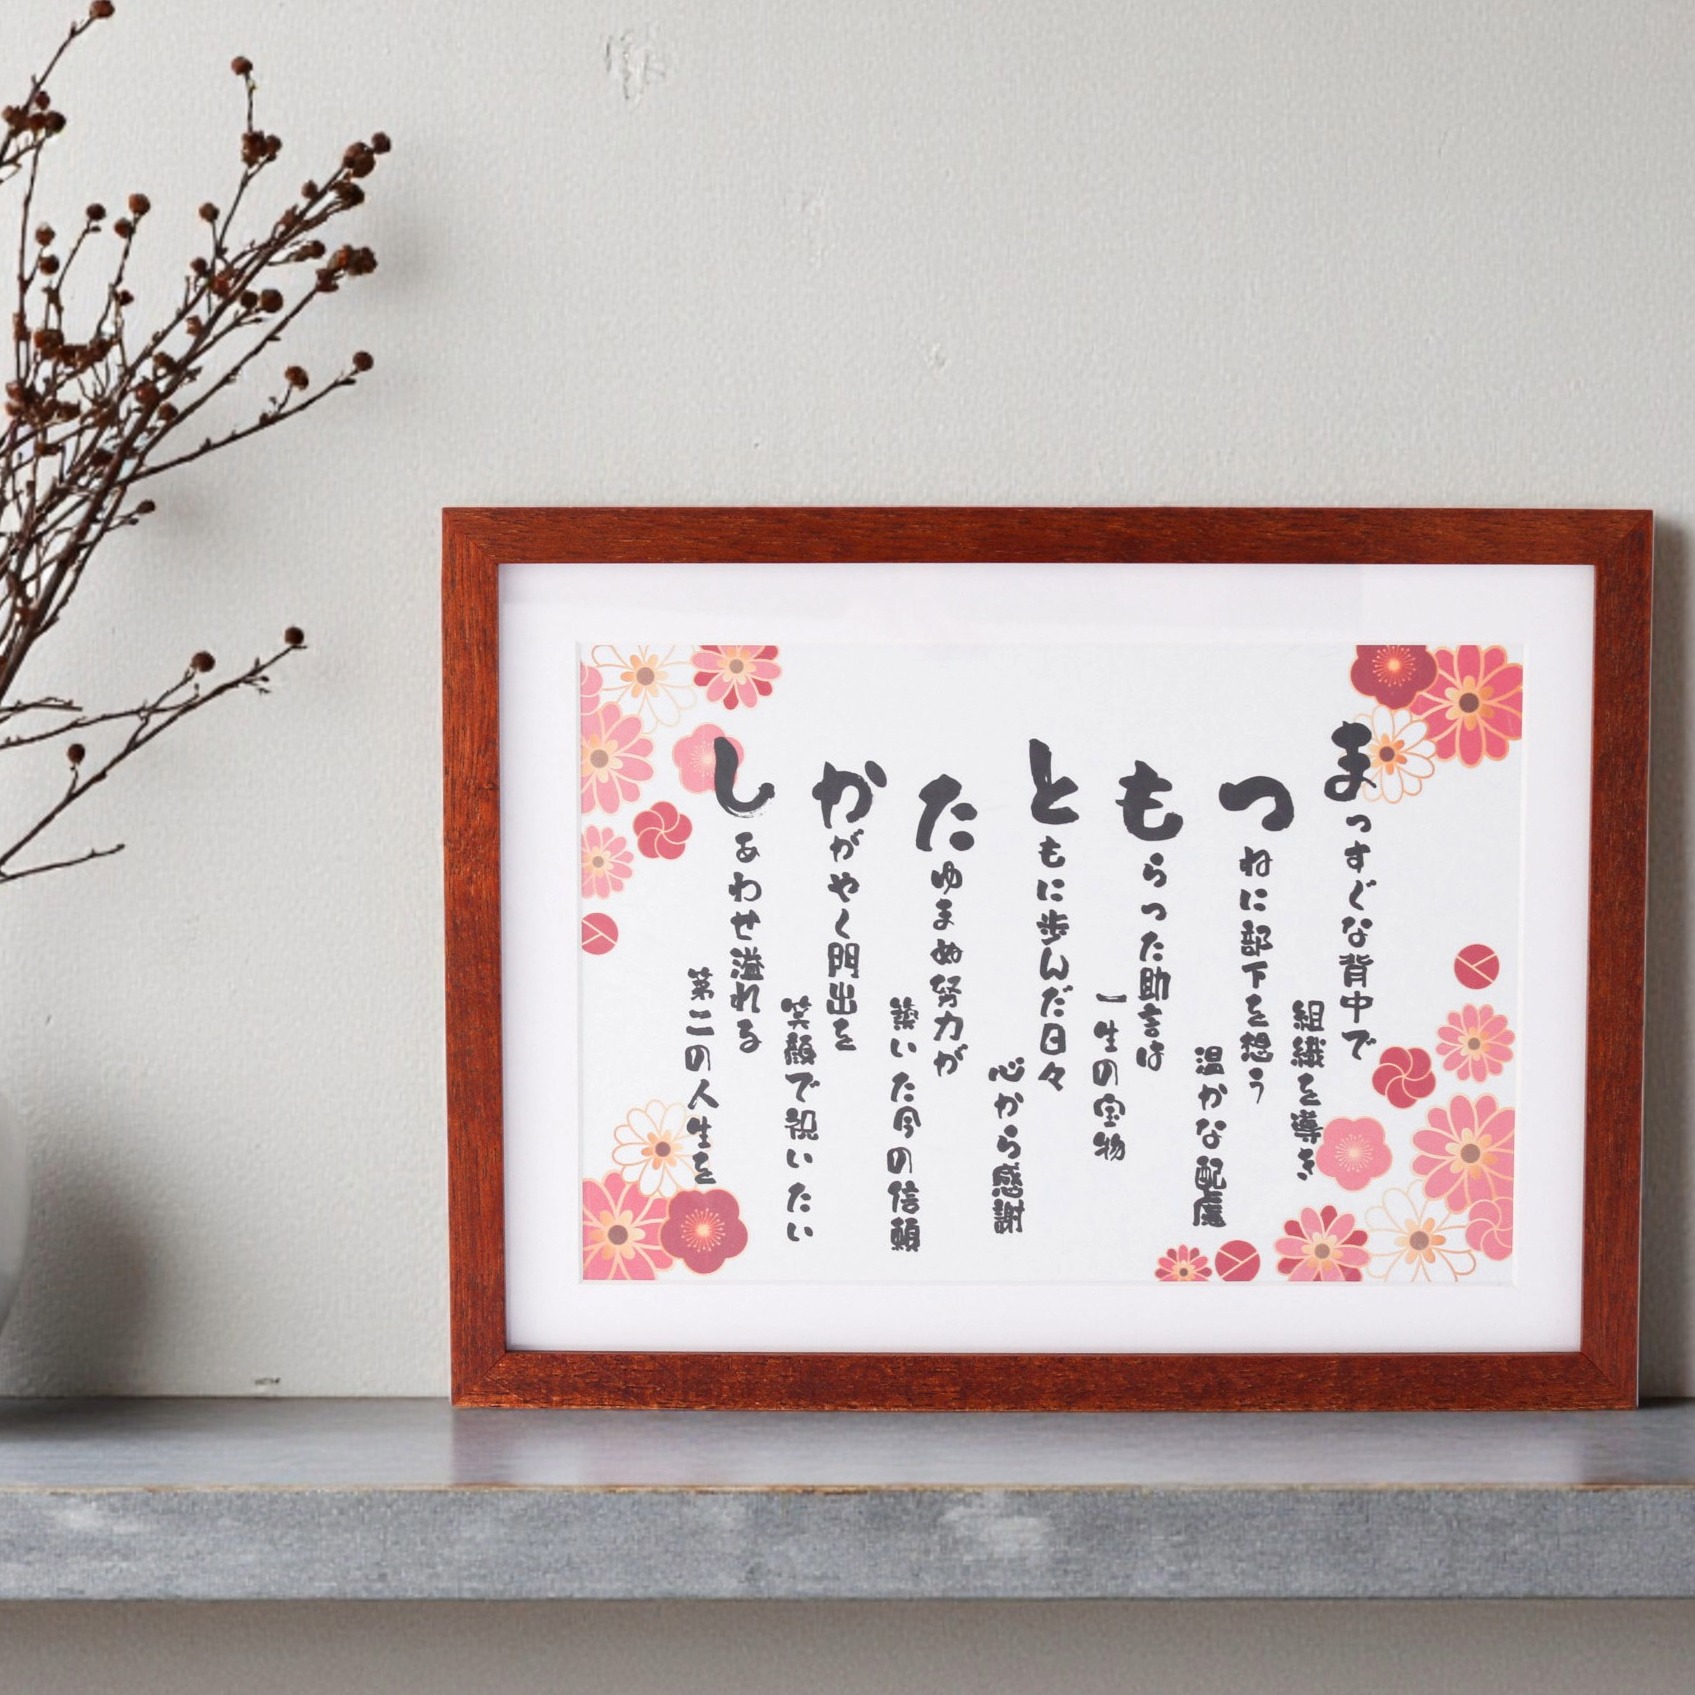 まっすぐな背中で
組織を導き
つねに部下を想う
温かな配慮
もらった助言は
一生の宝物
ともに歩んだ日々
心から感謝
たゆまぬ努力が
築いた今の信頼
かがやく門出を
笑顔で祝いたい
しあわせ溢れる
第二の人生を